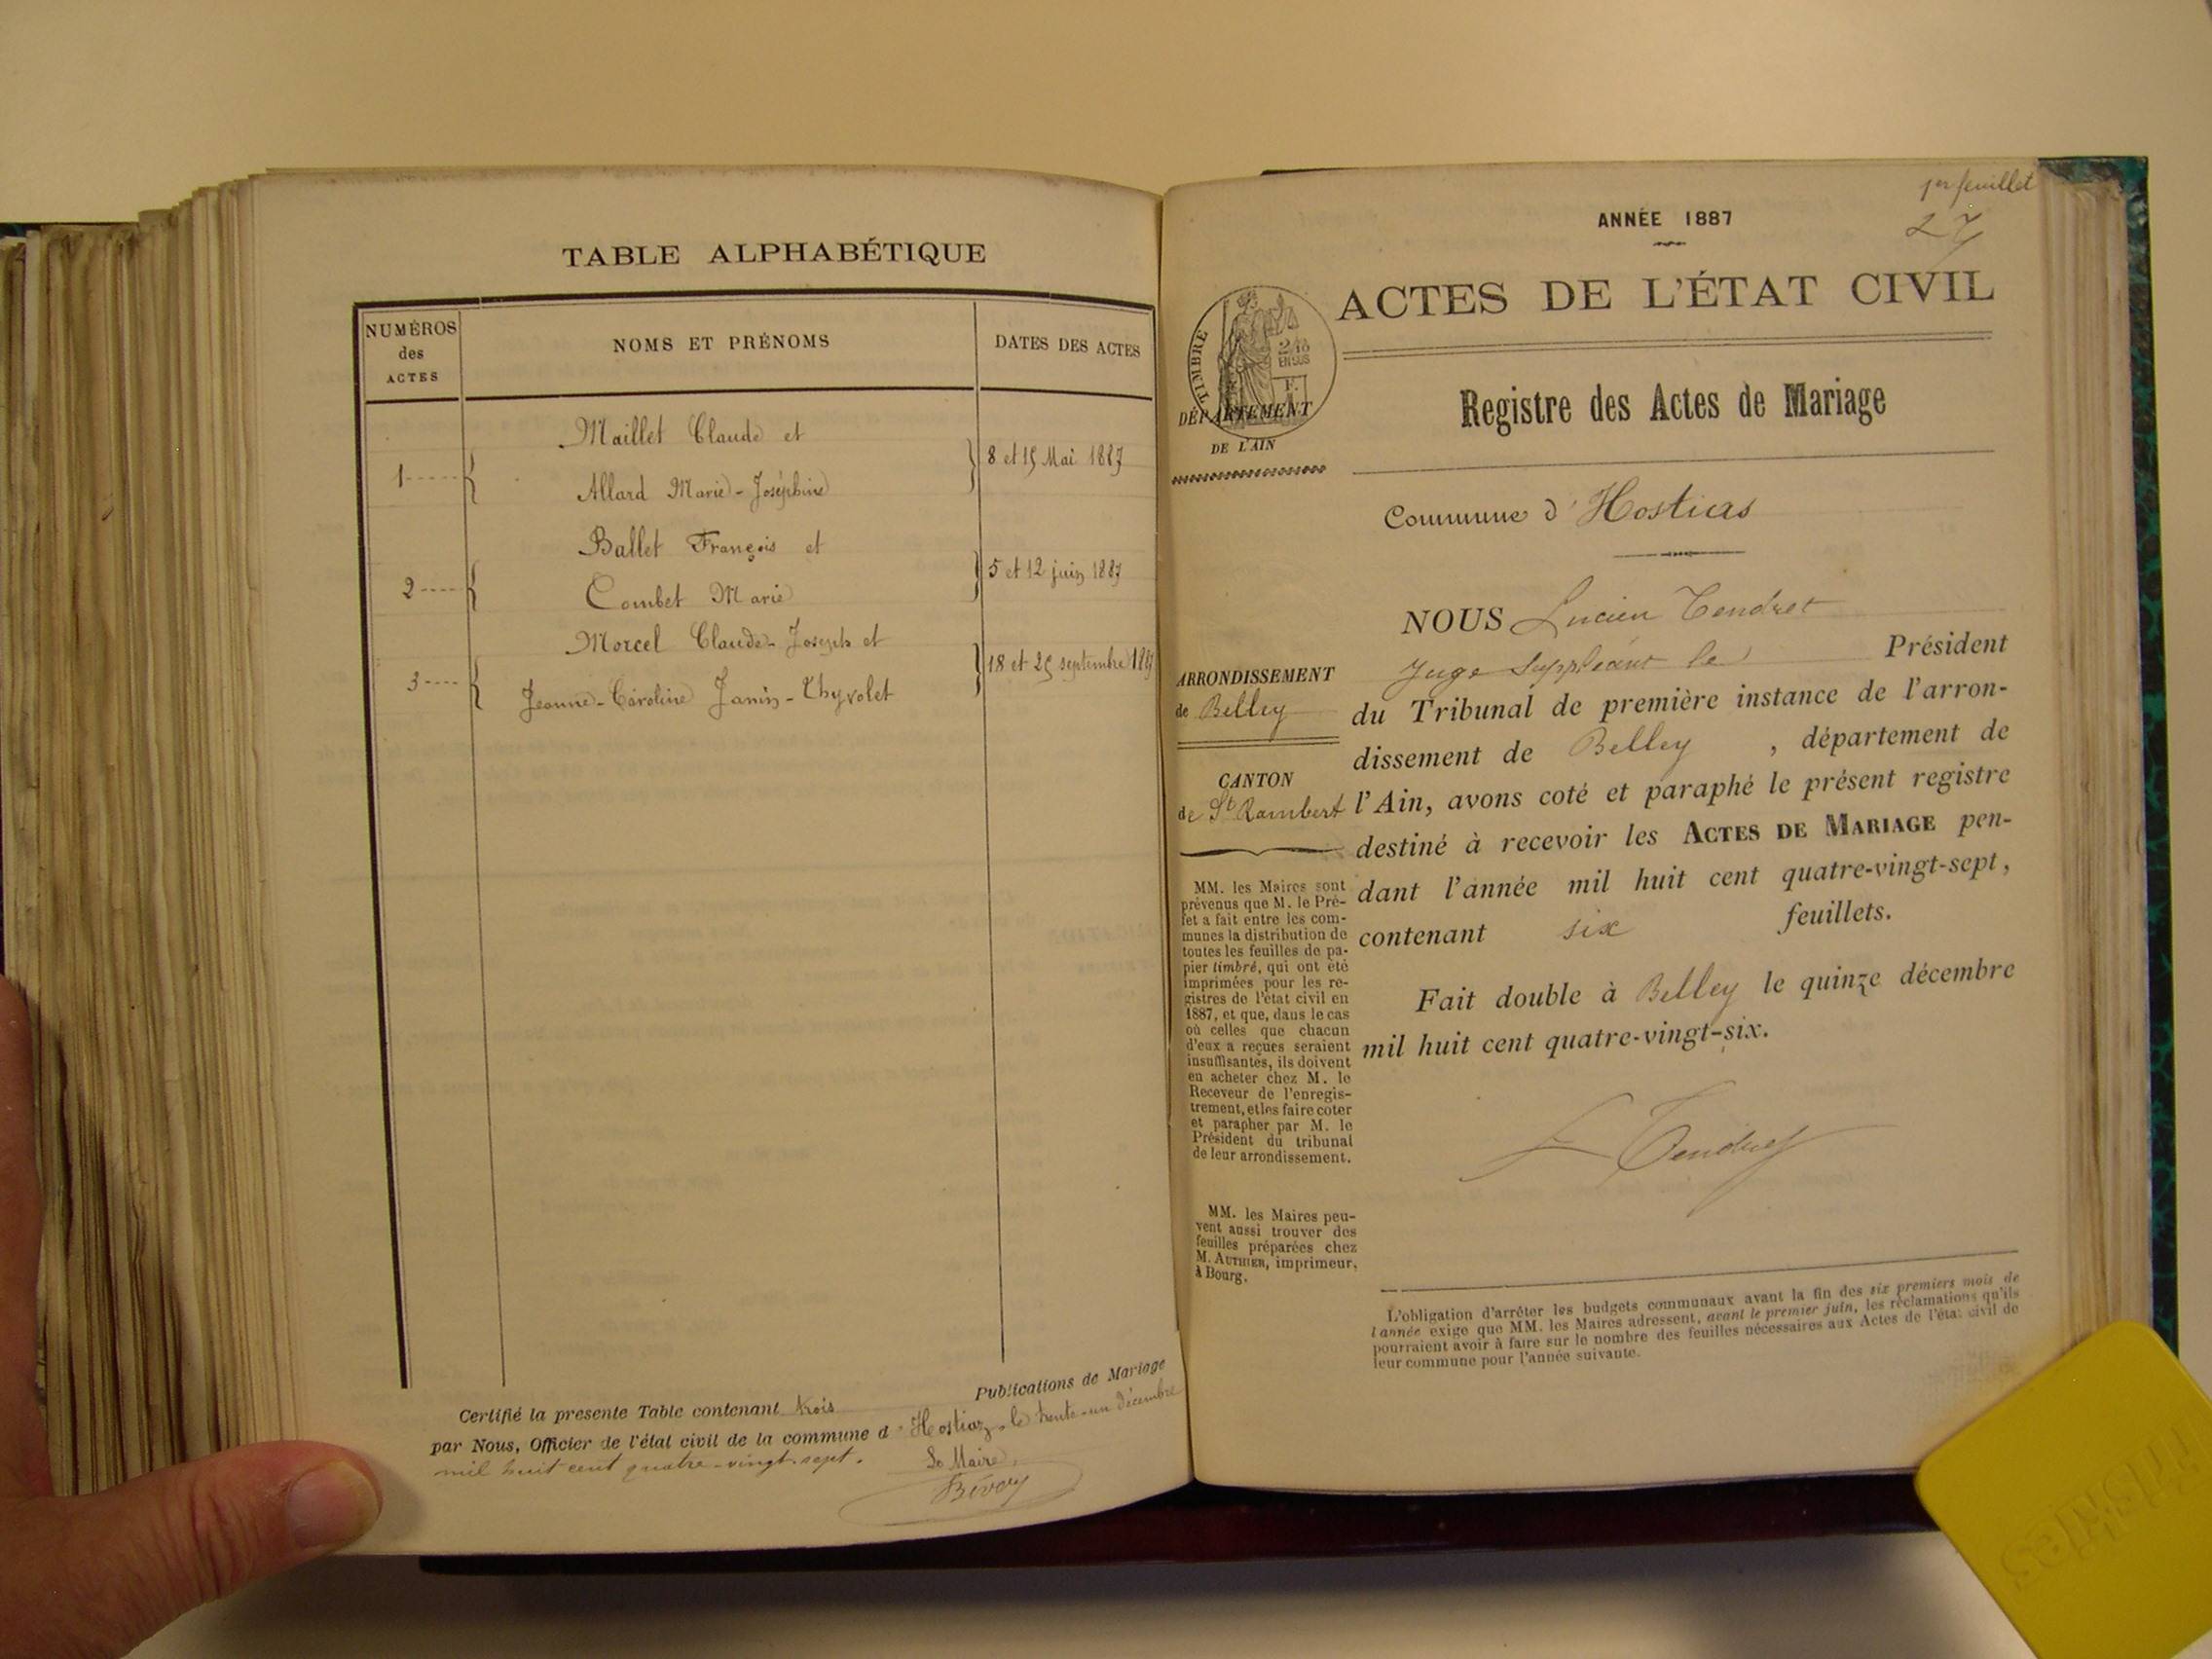 TABLE ALPHABÉTIQUE
NUMÉROS
des
ACTES
NOMS ET PRÉNOMS
DATES DES ACTES
Maillet Claude et
1
8 et 15 Mai 1887
Allard Marie-Joséphine
Ballet François et
2
5 et 12 juin 1887
Combet Marie
Morcel Claude-Joseph et
3
18 et 25 septembre 1887
Jeanne-Caroline Janin-Thyvolet
Certifié la présente Table contenant trois Publications de Mariage
par Nous, Officier de l'état civil de la commune d'Hostiaz, le trente-un décembre
mil huit cent quatre-vingt-sept.
Le Maire,
1er feuillet
27
ANNÉE 1887
ACTES DE L'ÉTAT CIVIL
TIMBRE
2/10
EN SUS
DÉPARTEMENT
DE L'AIN
Registre des Actes de Mariage
Commune d'Hostias
NOUS Lucien Tendret
Juge Suppléant le Président
du Tribunal de première instance de l'arron-
dissement de Belley, département de
l'Ain, avons coté et paraphé le présent registre
destiné à recevoir les ACTES DE MARIAGE pen-
dant l'année mil huit cent quatre-vingt-sept,
contenant six feuillets.
Fait double à Belley le quinze décembre
mil huit cent quatre-vingt-six.
L Tendret
ARRONDISSEMENT
de Belley
CANTON
de St Rambert
MM. les Maires sont
prévenus que M. le Pré-
fet a fait entre les com-
munes la distribution de
toutes les feuilles de pa-
pier timbré, qui ont été
imprimées pour les re-
gistres de l'état civil en
1887, et que, dans le cas
où celles que chacun
d'eux a reçues seraient
insuffisantes, ils doivent
en acheter chez M. le
Receveur de l'enregis-
trement, et les faire coter
et parapher par M. le
Président du tribunal
de leur arrondissement.
MM. les Maires peu-
vent aussi trouver des
feuilles préparées chez
M. AUTHIER, imprimeur,
à Bourg.
L'obligation d'arrêter les budgets communaux avant la fin des six premiers mois de
l'année exige que MM. les Maires adressent, avant le premier juin, les réclamations qu'ils
pourraient avoir à faire sur le nombre des feuilles nécessaires aux Actes de l'état civil de
leur commune pour l'année suivante.